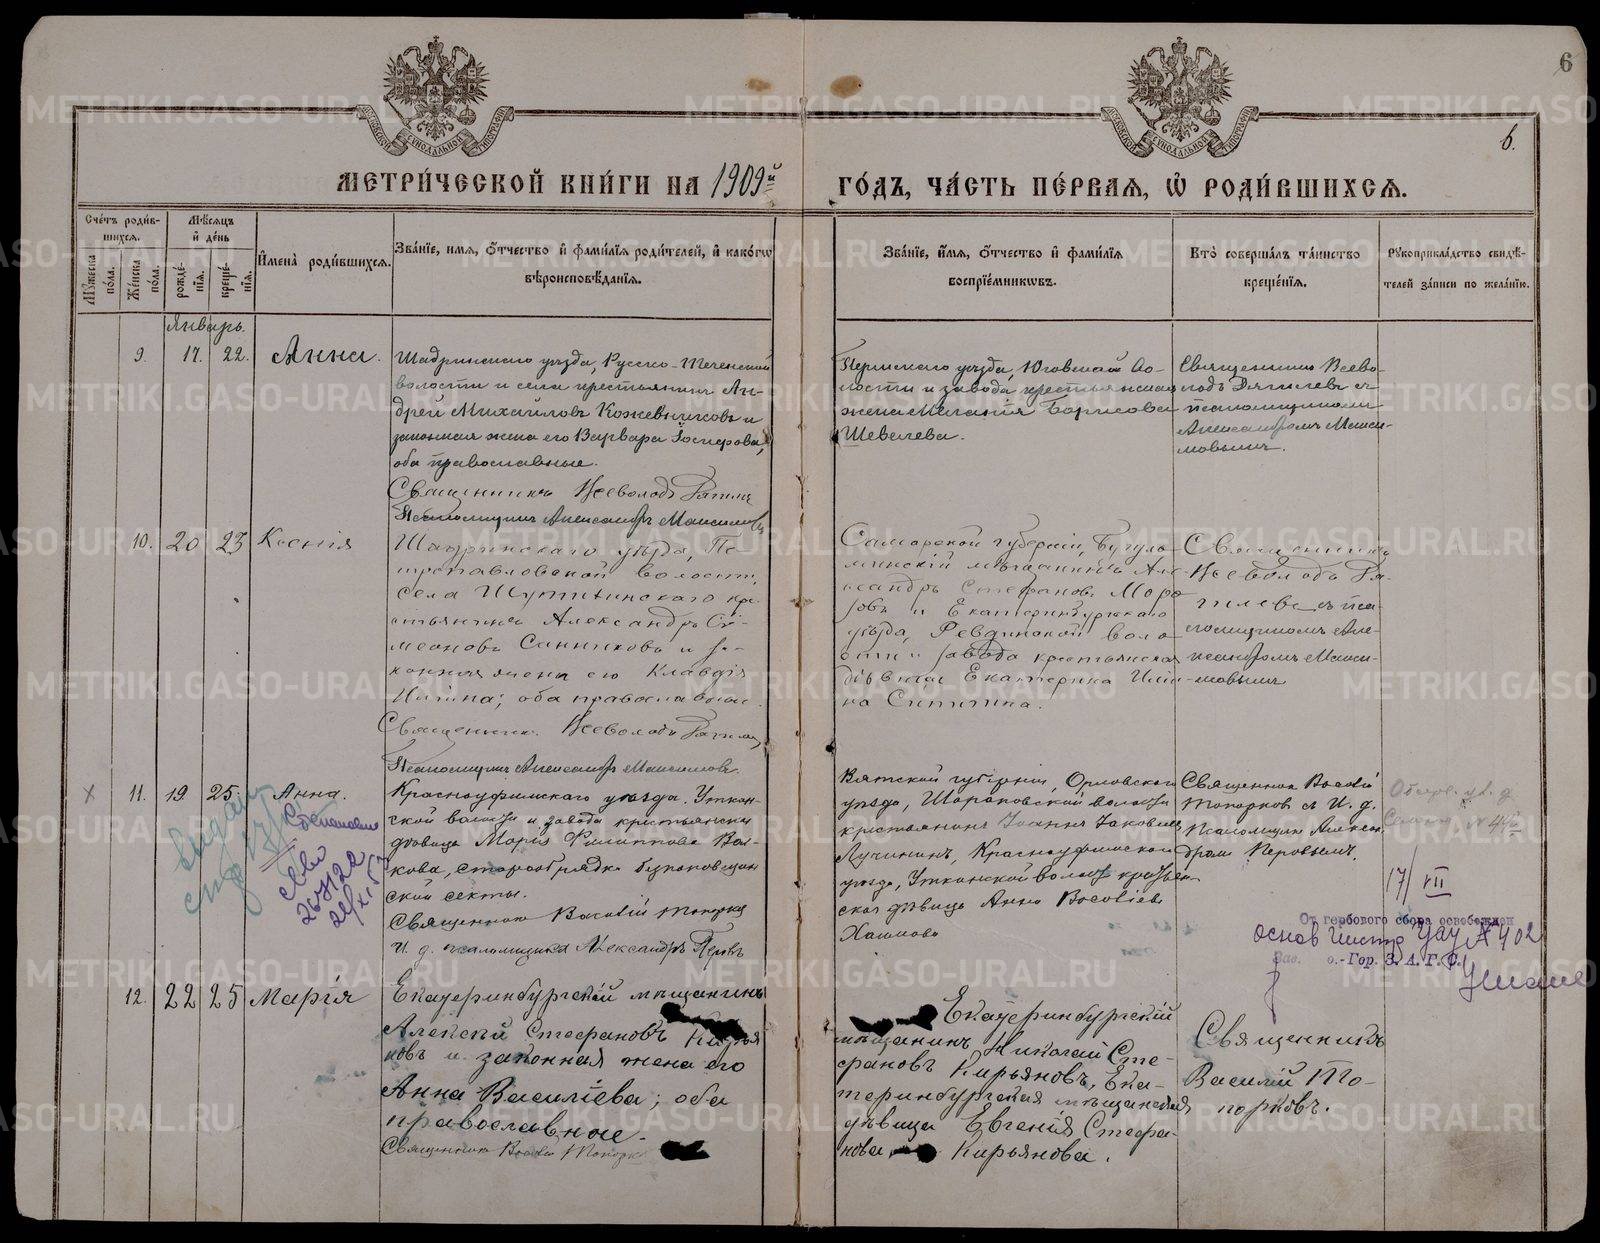 6
6.
МЕТРИ́ЧЕСКОЙ КНИ́ГИ НА 1909й ГО́ДЪ, ЧА́СТЬ ПЕ́РВАЯ, Ѡ҆ РОДИ́ВШИХСЯ.
Сче́тъ роди́в-
шихся.
Мꙋжеска по́ла.
Же́нска по́ла.
Мѣ́сяцъ
и҆ де́нь
рожде́нїя.
креще́нїя.
И҆мена̀ роди́вшихся.
Зва́нїе, имя, ѻ҆́тчество и҆ фами́лїя роди́телей, и҆ како́гѡ
вѣроисповѣ́данїя.
Зва́нїе, и҆́мя, ѻ҆́тчество и҆ фами́лїя
воспрїе́мниковъ.
Кто̀ соверша́лъ та́инство
креще́нїя.
Рꙋкоприкла́дство свидѣ́-
телей за́писи по жела́нїю.
Январь.
9. 17. 22. Анна.
Шадринскаго уѣзда, Русско-Теченской
волости и села крестьянинъ Ан-
дрей Михайловъ Кожевниковъ и
законная жена его Варвара
оба православные.
Священникъ Всеволодъ
Псаломщикъ Александръ Максимовъ
Пермскаго уѣзда, Юговской во-
лости и завода крестьянская
жена Мелания Борисова
Шевелева.
Священникъ Всево-
лодъ съ
псаломщикомъ
Александромъ Макси-
мовымъ.
10. 20 23 Ксенія
Шадринскаго уѣзда, Пе-
тропавловской волости,
села Шутинскаго кре-
стьянинъ Александръ Си-
меоновъ Санниковъ и за-
конная жена его Клавдія
Ильина; оба православные.
Священникъ Всеволодъ
Псаломщикъ Александръ Максимовъ.
Самарской губерніи, Бугуль-
минскій мѣщанинъ Але-
ксандръ Стефановъ Моро-
зовъ и Екатеринбургскаго
уѣзда, Ревдинской воло-
сти и завода крестьянская
дѣвица Екатерина Ильи-
на
Священникъ
Всеволодъ
съ пса-
ломщикомъ Але-
ксандромъ Макси-
мовымъ
11. 19 25. Анна.
Степановна
Красноуфимскаго уѣзда. Уткин-
ской волости и завода крестьянская
дѣвица Марія Филиппова Вол-
кова, старообрядка безпоповщин-
ской секты.
Священникъ Василій Топорковъ
И. д. псаломщика Александръ Перовъ
Вятской губерніи, Орловскаго
уѣзда, волости
крестьянинъ Іоаннъ Іаковлевъ
Лучининъ, Красноуфимскаго
уѣзда, Уткинской волости крестьян-
ская дѣвица Анна
Священникъ Василій
Топорковъ съ И. д.
Псаломщика Алексан-
дромъ Перовымъ.
17/VII
От гербового сбора освобожден
основ
о.-Гор. З. А. Г. С.
12. 22 25 Марія
Екатеринбургскій мѣщанинъ
Алексѣй Стефановъ Кирья-
новъ и законная жена его
Анна Василіева; оба
православные.
Священникъ Василій Топорковъ
Екатеринбургскій
мѣщанинъ Николай Сте-
фановъ Кирьяновъ, Ека-
теринбургская мѣщанская
дѣвица Евгенія Стефа-
нова Кирьянова.
Священникъ
Василій То-
порковъ.
METRIKI.GASO-URAL.RU